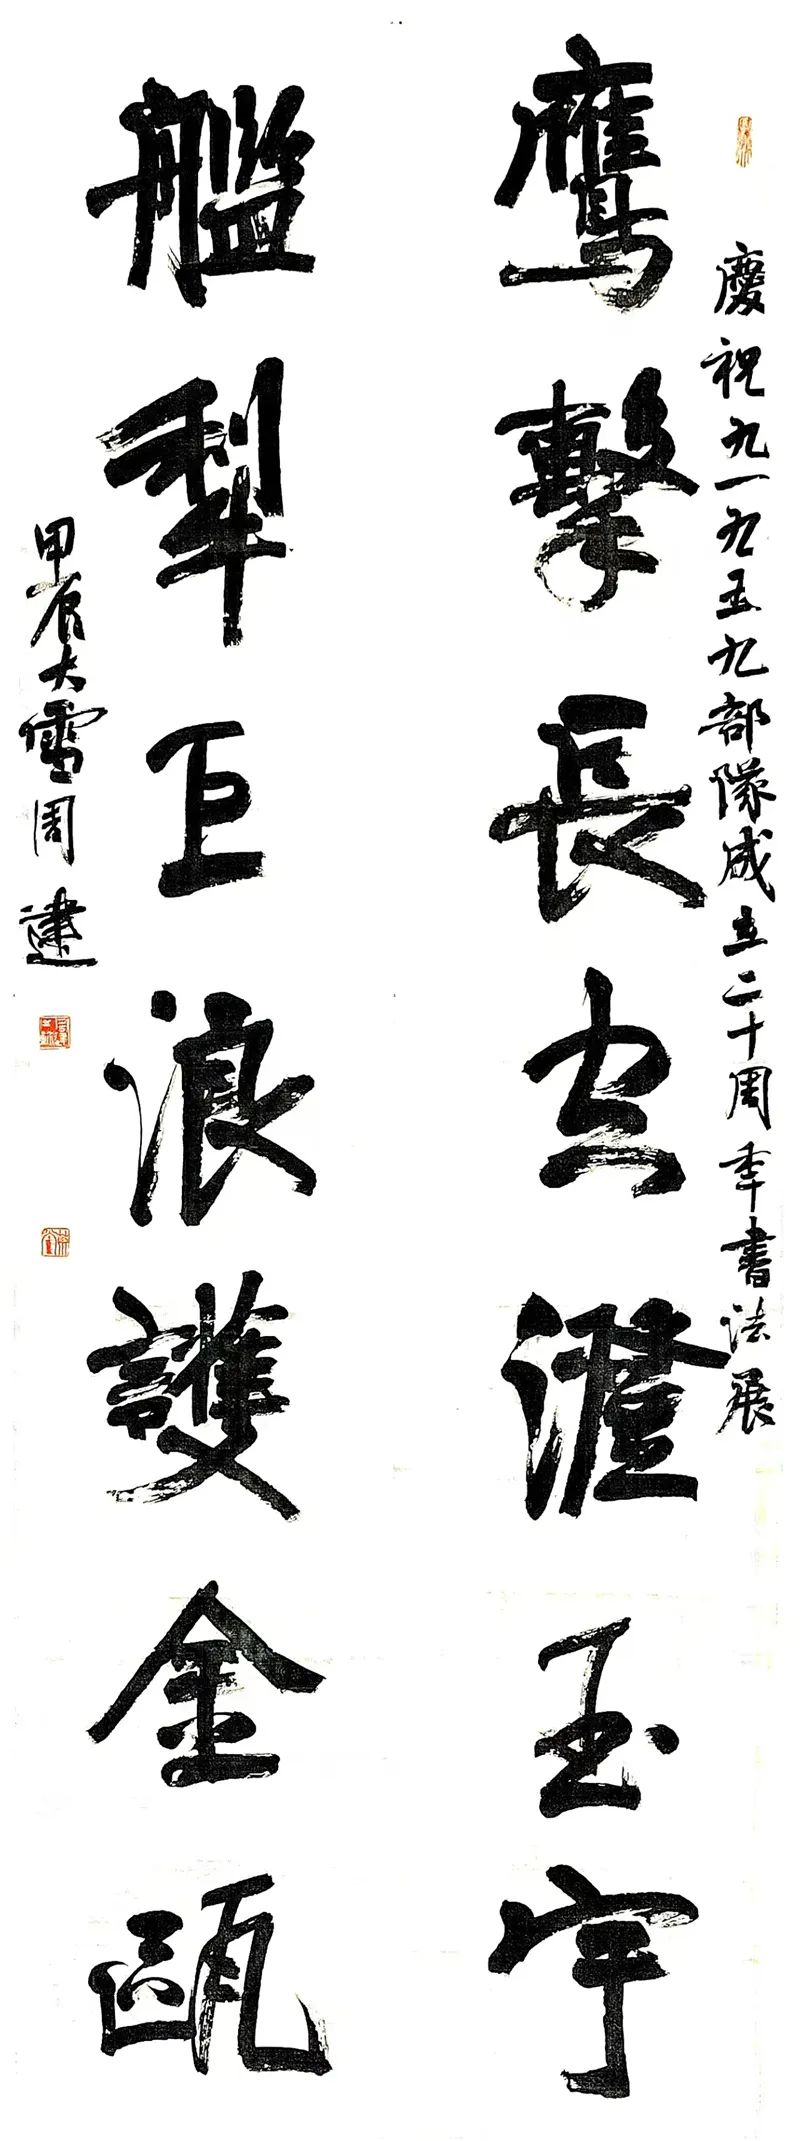 慶祝九一九五九部隊成立二十周年書法展
鷹擊長空澄玉宇
艦犁巨浪護金甌
甲辰大雪周建